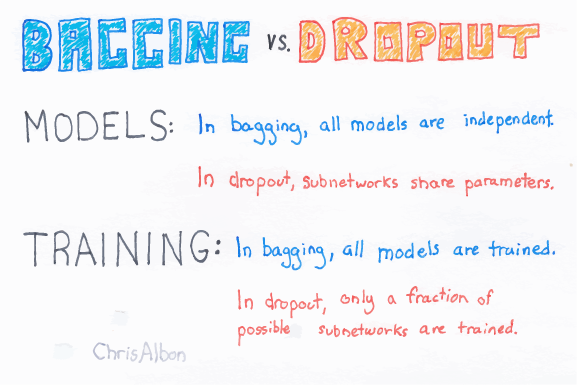 BAGGING vs. DROPOUT
MODELS: In bagging, all models are independent.
In dropout, subnetworks share parameters.
TRAINING: In bagging, all models are trained.
In dropout, only a fraction of
possible subnetworks are trained.
Chris Albon